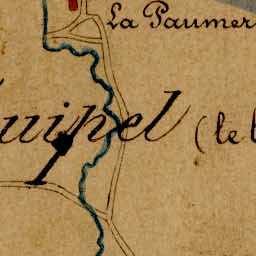 La Paumer
uipel (le b